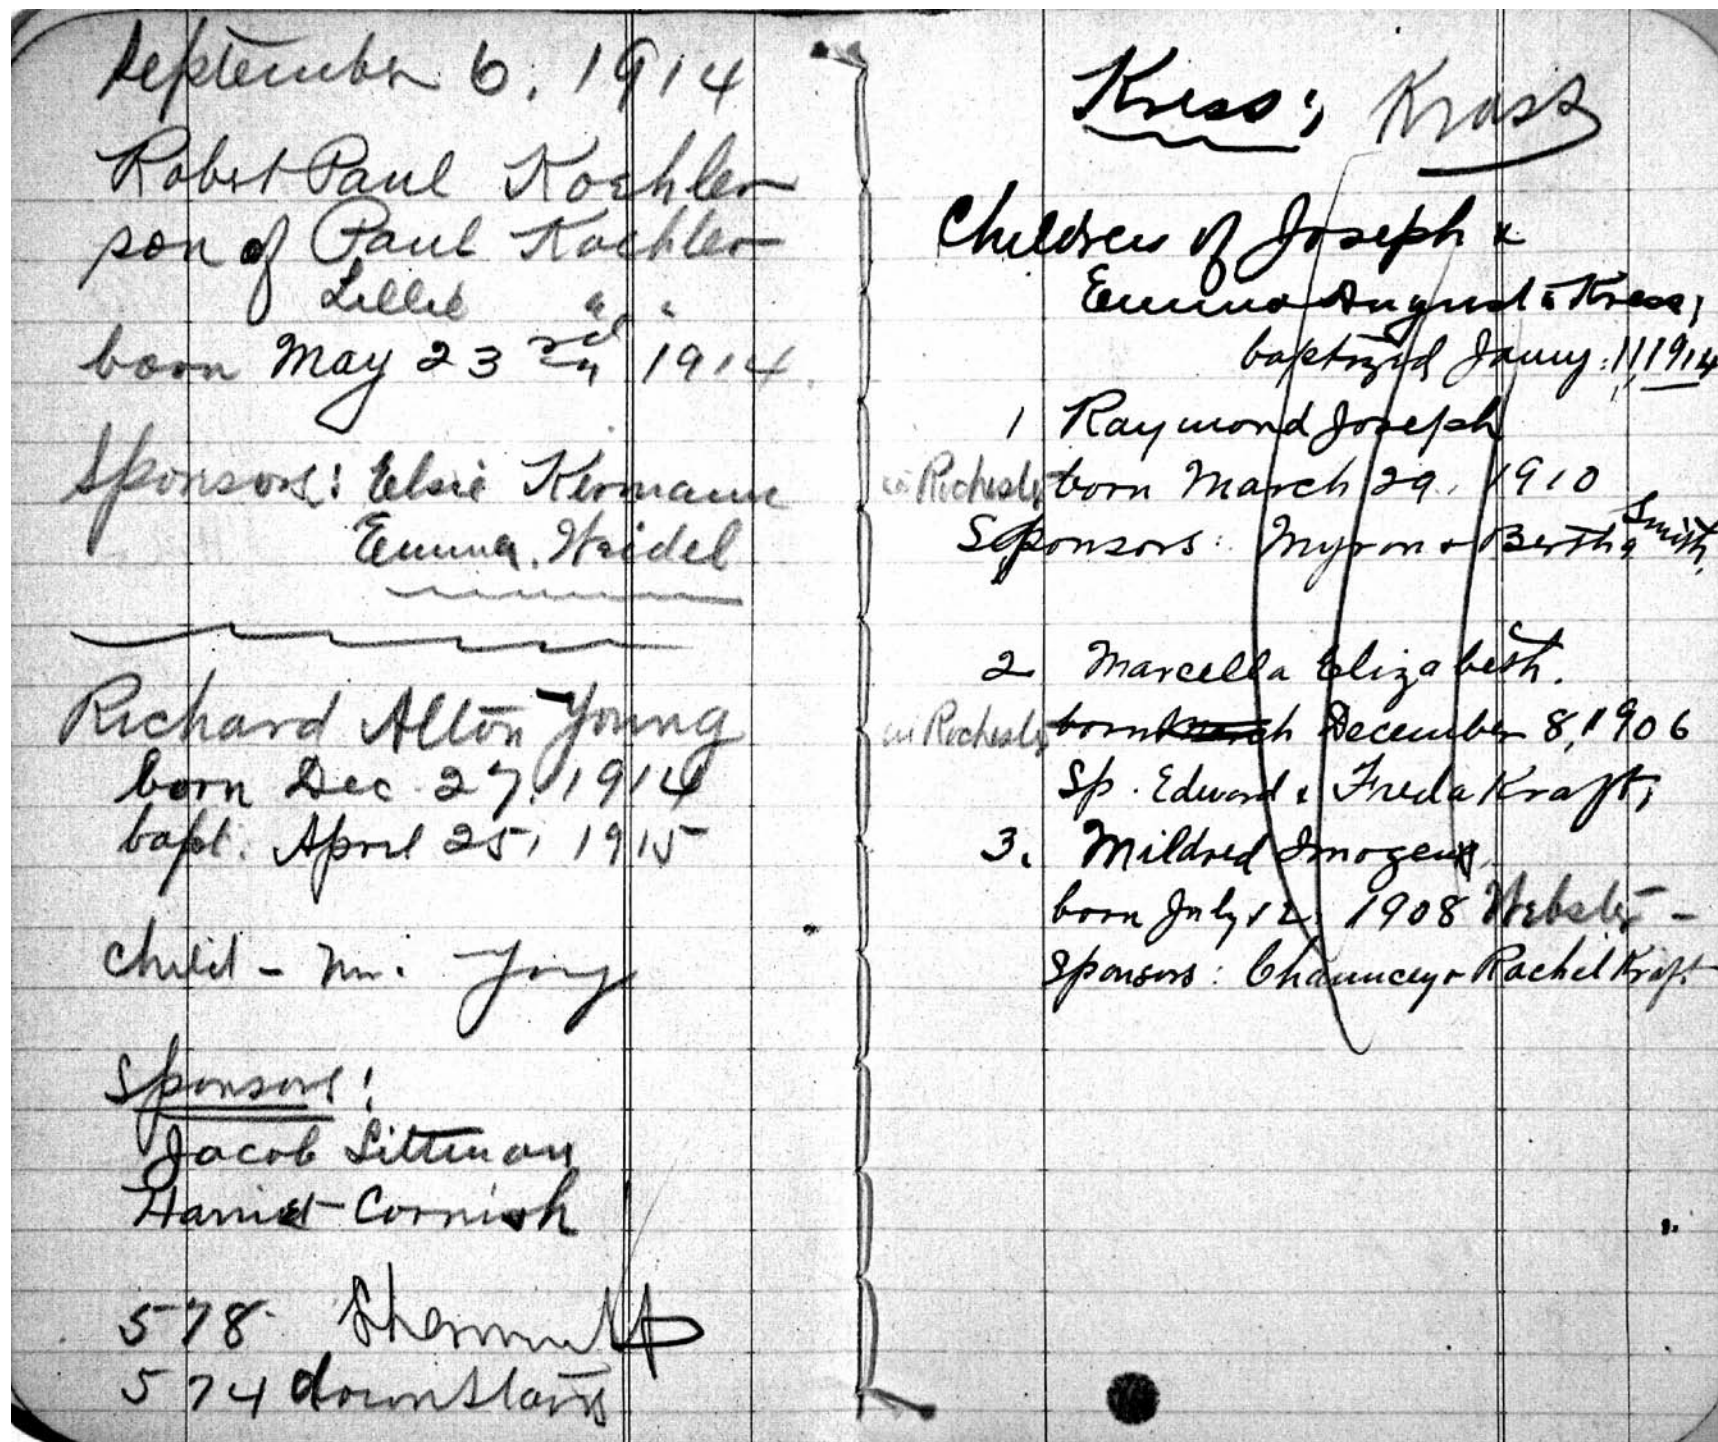 September 6, 1914
Robert Paul Koehler
son of Paul Koehler
Lillie " "
born May 23rd 1914.
Sponsors: Elsie Kermann
Emma Weidel
Richard Alton Young
born Dec. 27, 1914
bapt. April 25, 1915
child - Mr.
Sponsors!
Jacob Littman
Harriet Cornish
578
574 downstairs
Kress;
Children of Joseph &
Emma August Kress;
baptized Janny: 11, 1914
1 Raymond Joseph
in Rochester born March 29, 1910
Sponsors: Myron & Bertha Smith,
2 Marcella Elizabeth.
in Rochester born March December 8, 1906
Sp. Edward & Freda Kraft;
3. Mildred Imogene
born July 12, 1908 Webster -
Sponsors: Chauncey & Rachel Kraft